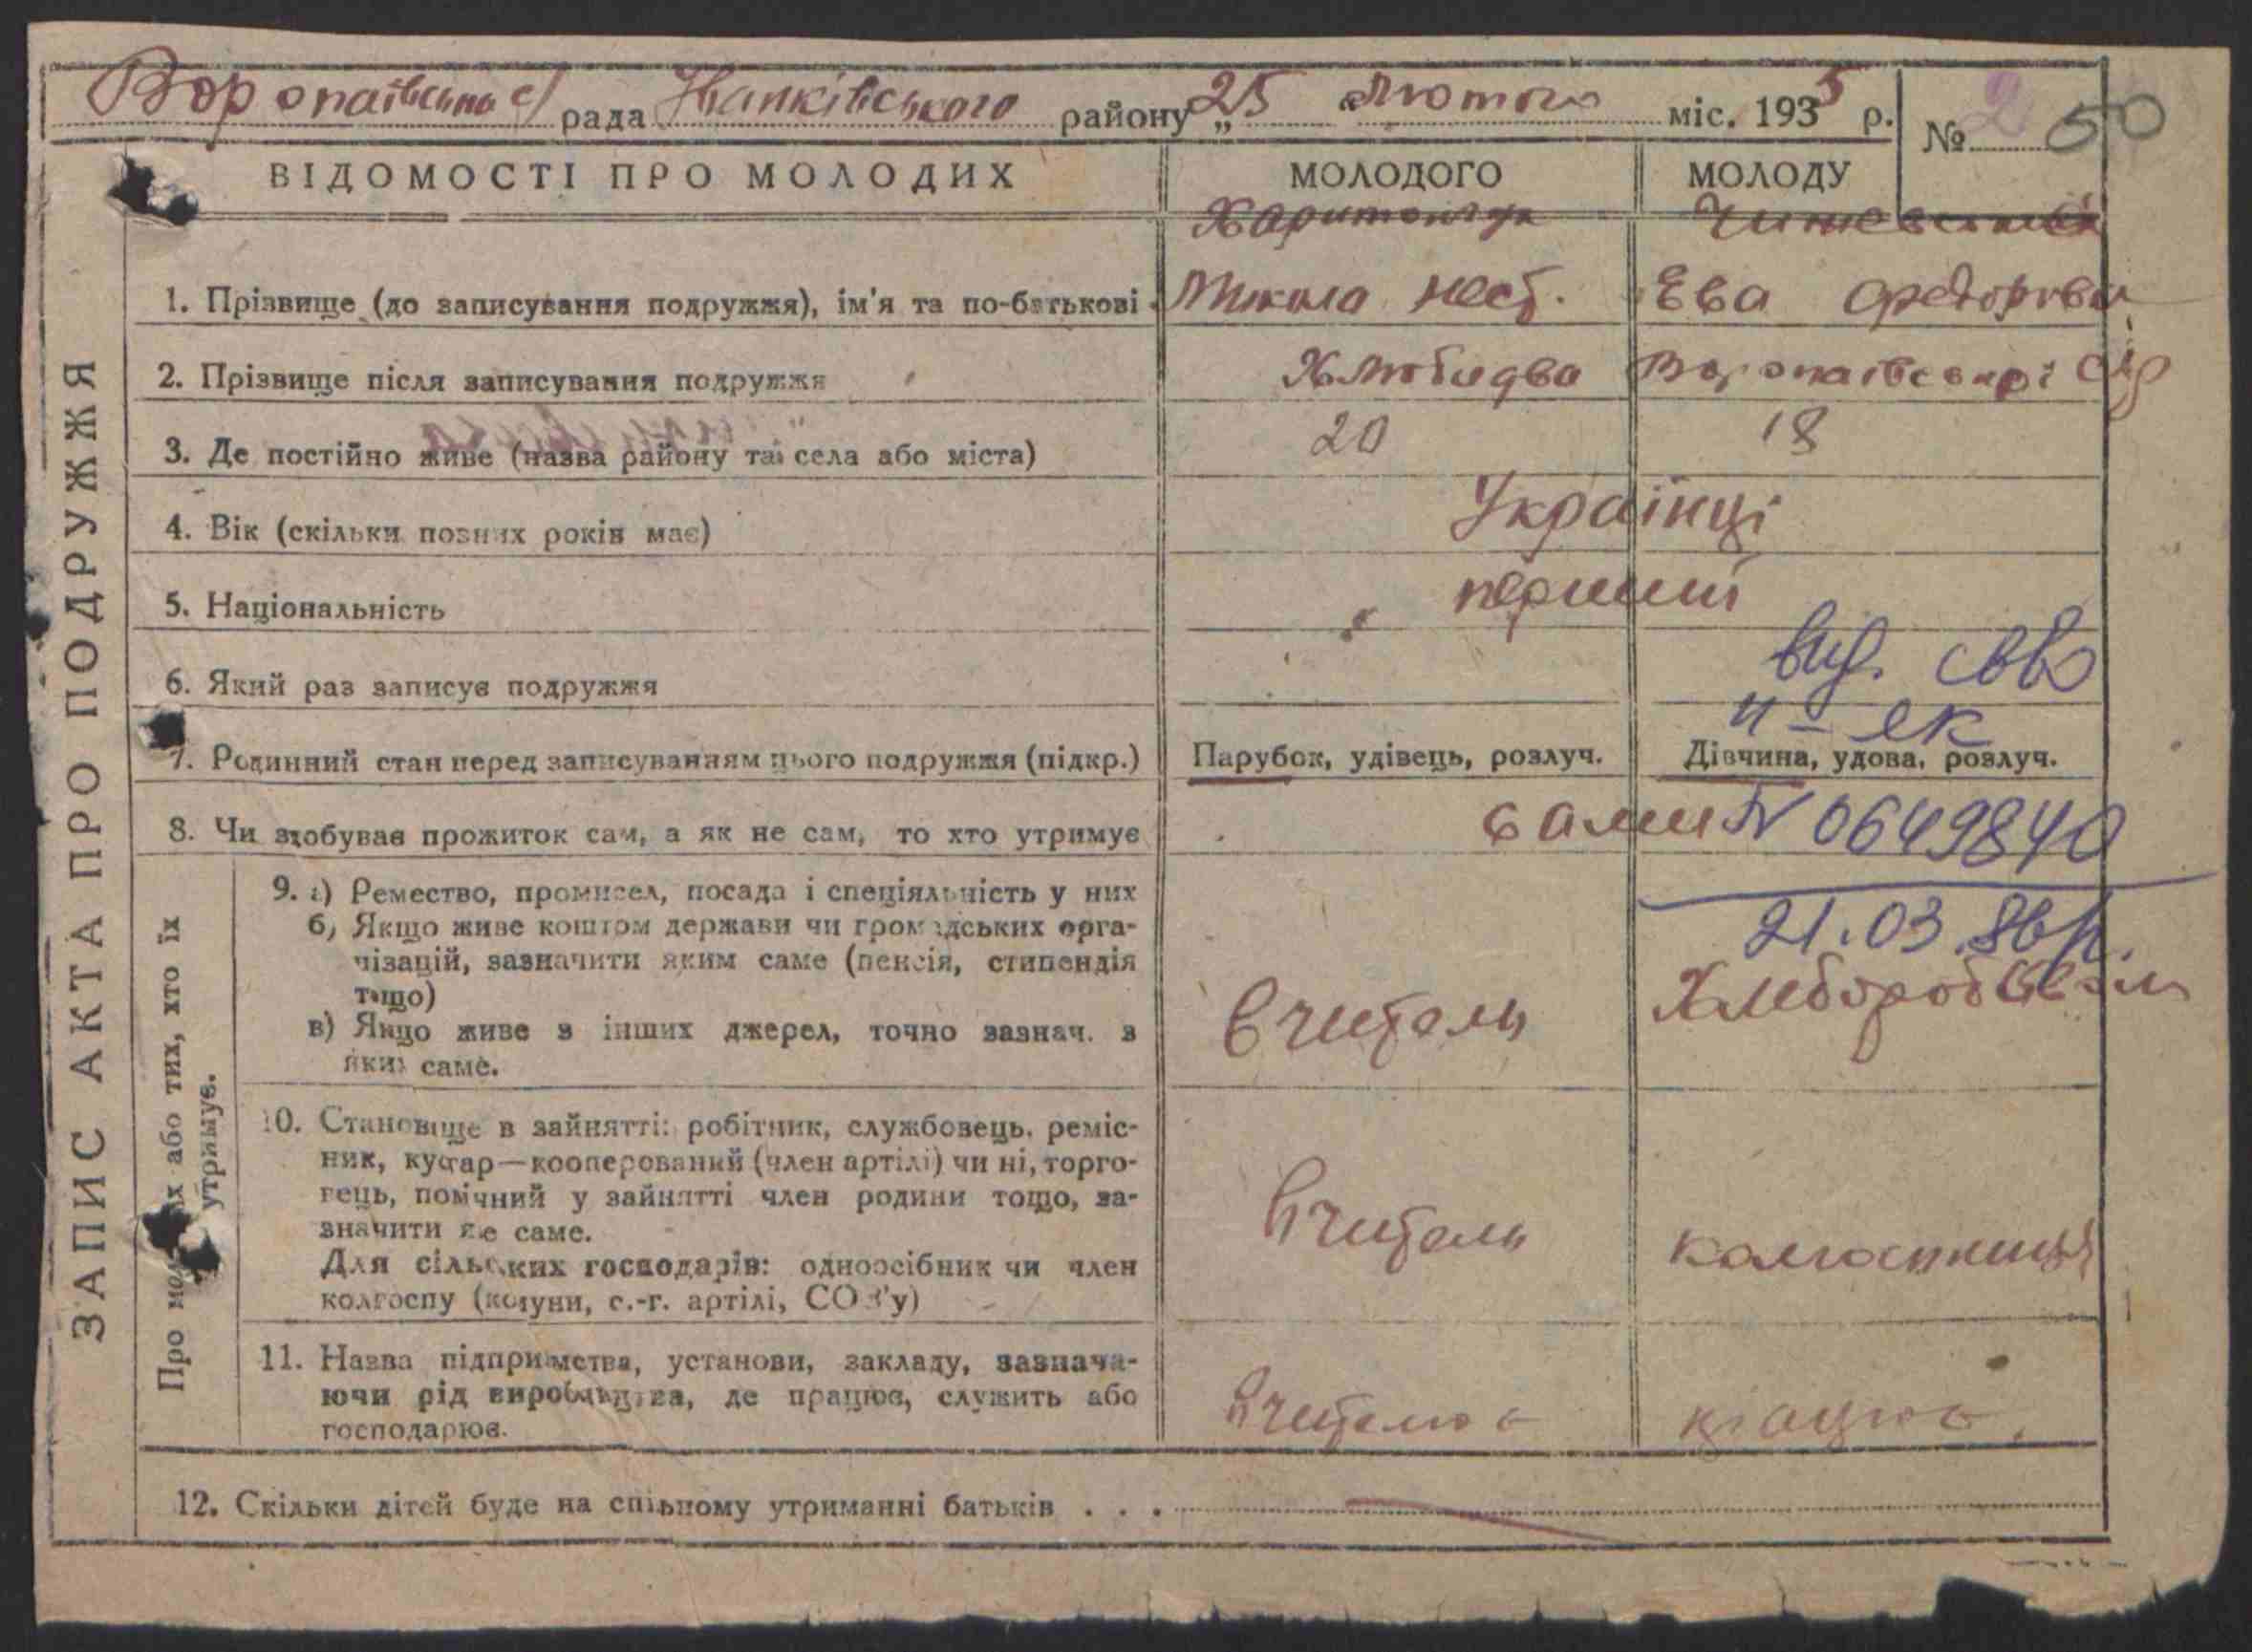 Воропаївська с/рада Іванківського району „25" Лютого міс. 1935 р.
№ 2 50
ВІДОМОСТІ ПРО МОЛОДИХ
МОЛОДОГО
МОЛОДУ
Харитончук
1. Прізвище (до записування подружжя), ім'я та по-батькові
Микола
Ева Федорова
2. Прізвище після записування подружжя
Воропаївської с/р
3. Де постійно живе (назва району та села або міста)
20
18
4. Вік (скільки повних років має)
Українці
5. Національність
перший
6. Який раз записує подружжя
вид. св-во
ІІ-ЕК
7. Родинний стан перед записуванням цього подружжя (підкр.)
Парубок, удівець, розлуч.
Дівчина, удова, розлуч.
8. Чи здобував прожиток сам, а як не сам, то хто утримує
сами
N 0649840
21.03.86р.
Про молодих або тих, хто їх утримує.
9. а) Ремество, промисел, посада і спеціяльність у них
б) Якщо живе коштом держави чи громадських орга-
нізацій, зазначити яким саме (пенсія, стипендія
тощо)
в) Якщо живе з інших джерел, точно зазнач. з
яких саме.
Вчитель
10. Становище в зайнятті: робітник, службовець, реміс-
ник, кустар—кооперований (член артілі) чи ні, торго-
вець, помічний у зайнятті член родини тощо, за-
значити яке саме.
Для сільських господарів: одноосібник чи член
колгоспу (комуни, с.-г. артілі, СОЗ'у)
Вчитель
колгоспниця
11. Назва підприємства, установи, закладу, зазнача-
ючи рід виробництва, де працює, служить або
господарює.
Вчителює
працює.
12. Скільки дітей буде на спільному утриманні батьків . . .
ЗАПИС АКТА ПРО ПОДРУЖЖЯ